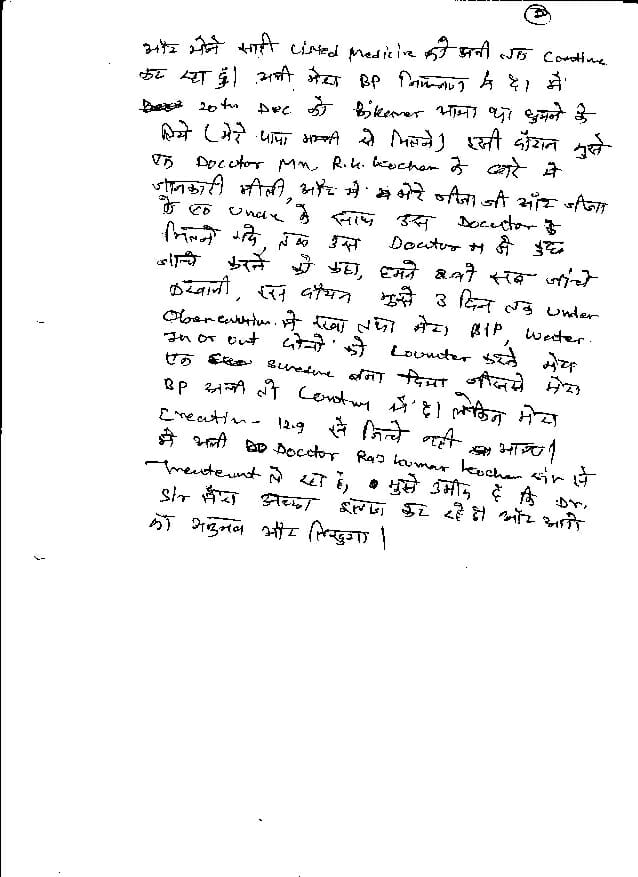 3
और मैंने सारी Listed Medicine को अभी तक Continue
कर रहा हूँ। अभी मेरा BP नियन्त्रण में है। मैं
20th Dec को Bikaner आया था घुमने के
लिये (मेरे पापा मम्मी से मिलने) इसी दौरान मुझे
एक Docctor Mn, R.K. Kochar के बारे में
जानकारी मीली, और मैं मेरे जीजा जी और जीजा
के एक Uncle के साथ उस Docctor के
मिलने गये, तक उस Docctor ने मुझे कुछ
जांचे करने को कहा, हमने सब जांचे
करवानी, इस दौरान मुझे 3 दिन तक Under
Obsercation में रखा तथा मेरा B/P, Water
In or out दोनों को Counter करके मेरा
एक बना दिया जीससे मेरा
BP अभी तो Control में है। लेकिन मेरा
Creatin - 12.9 से निचे नही आया।
मैं अभी Docctor Raj Kumar Kochar sir से
Treatment ले रहा हूँ, मुझे उमीद है कि Dr.
Sir मेरा अच्छा इलाज कर रहे है और आगे
का अनुभव और लिखुगा।